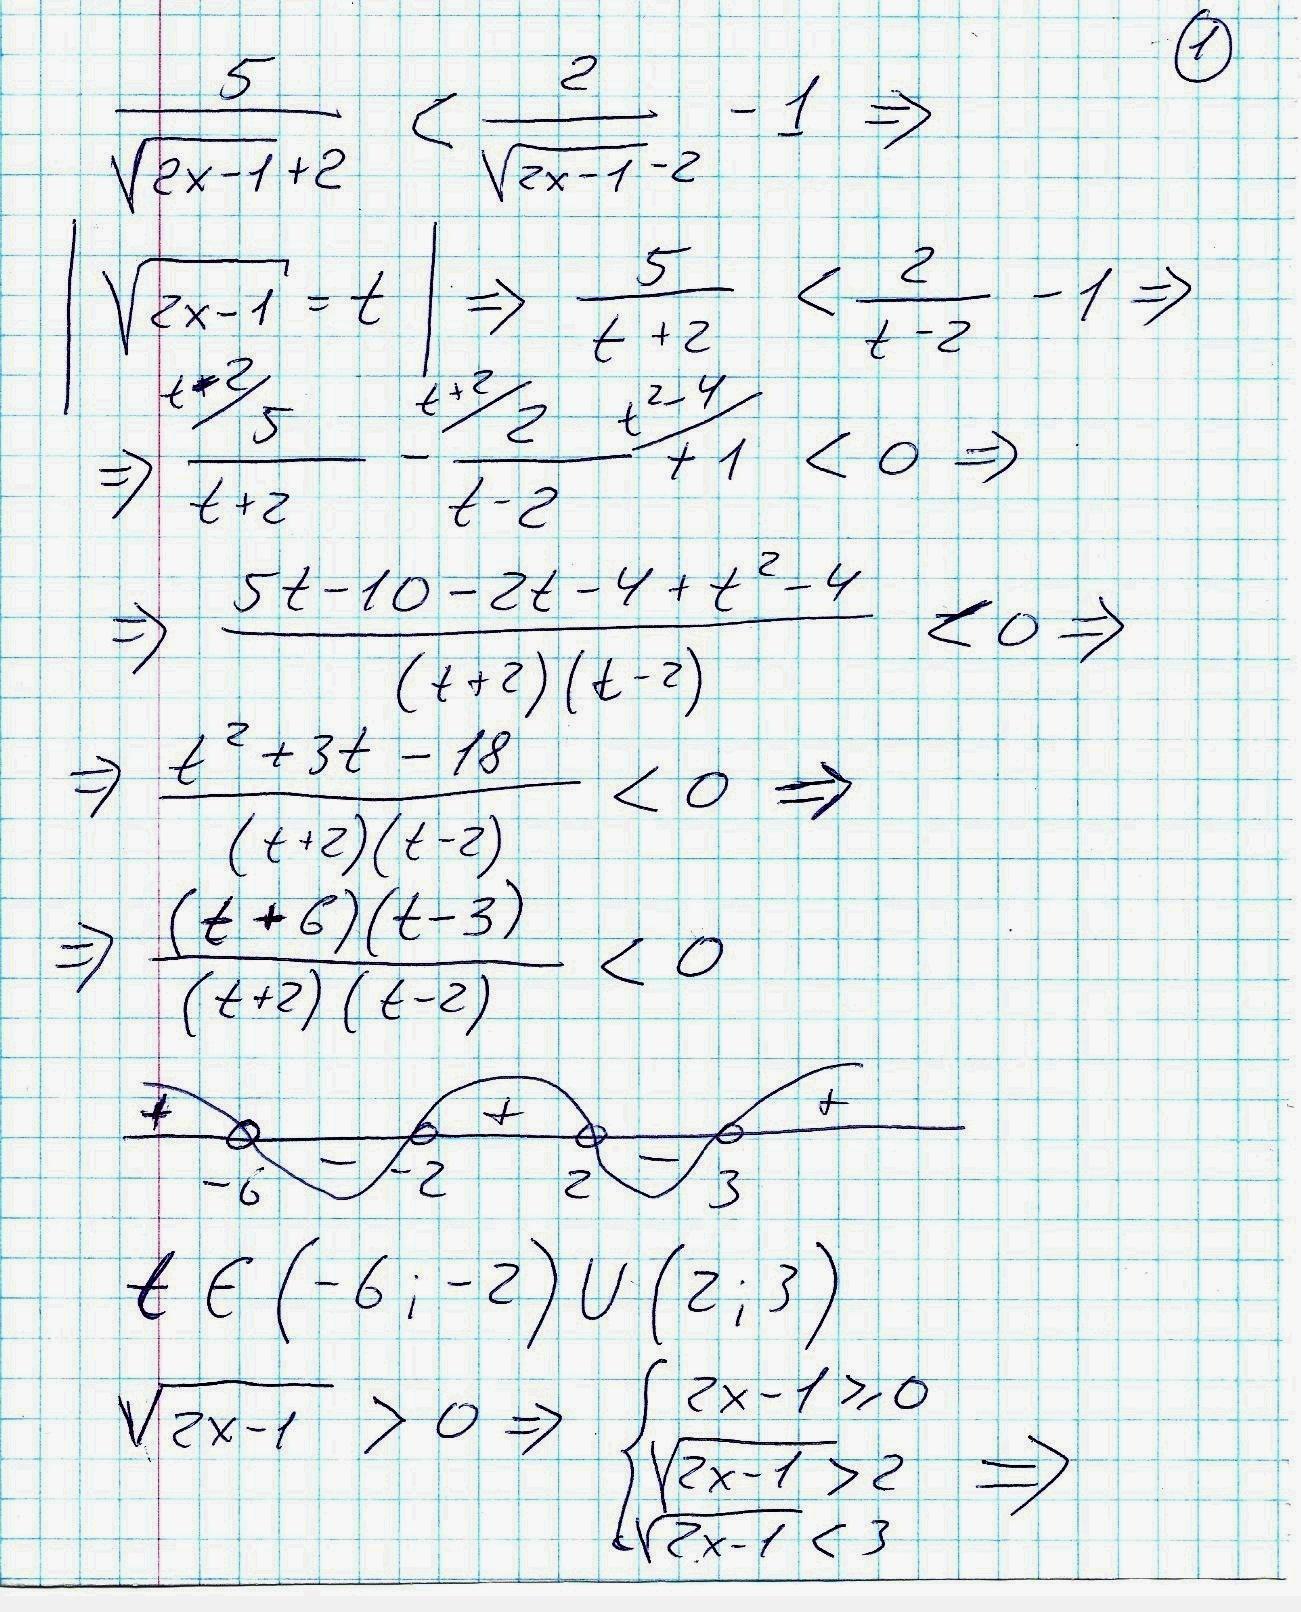 1
5/(√(2x-1)+2) < 2/(√(2x-1)-2) - 1 ⇒
|√(2x-1) = t| ⇒ 5/(t+2) < 2/(t-2) - 1 ⇒
t-2/ t+2/ t²-4/
⇒ 5/(t+2) - 2/(t-2) + 1 < 0 ⇒
⇒ (5t-10-2t-4+t²-4)/((t+2)(t-2)) < 0 ⇒
⇒ (t²+3t-18)/((t+2)(t-2)) < 0 ⇒
⇒ ((t+6)(t-3))/((t+2)(t-2)) < 0
+ - + - +
-6 -2 2 3
t ∈ (-6;-2) ∪ (2;3)
√(2x-1) > 0 ⇒ { 2x-1 ≥ 0
√(2x-1) > 2 ⇒
√(2x-1) < 3